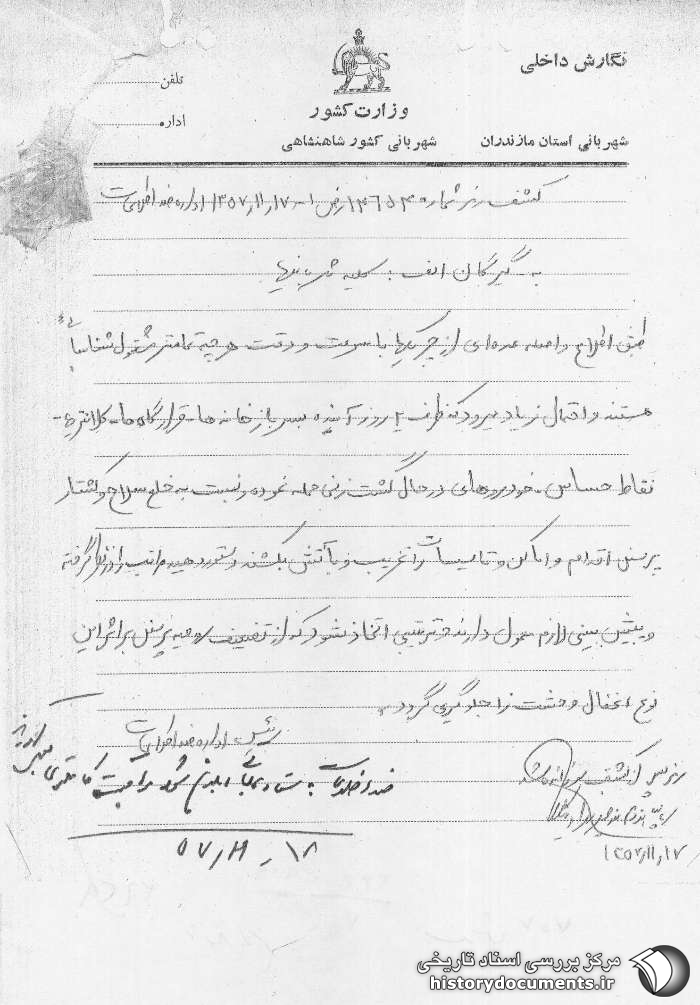 نگارش داخلی
وزارت کشور
شهربانی کشور شاهنشاهی
شهربانی استان مازندران
تلفن
اداره
کشف رمز شماره ۱۴۶۵۳ رمز ۱-۱۳۵۷/۱۱/۱۷ اداره ضد اطلاعات
به - گیرندگان الف : کلیه شهربانیها
طبق اطلاع واصله عده‌ای از چریکها با سرعت و دقت هر چه تمامتر مشغول شناسائی
هستند و احتمال زیاد میرود که ظرف ۲ روز آینده بسربازخانه ها - قرارگاه ها - کلانتریها -
نقاط حساس - خودروهای در حال گشت زنی حمله نموده و نسبت به خلع سلاح و کشتار
پرسنل اقدام و اماکن و تاسیسات را تخریب و یا آتش بکشند دستور دهید مراتب را در نظر گرفته
و پیش بینی لازم معمول دارند و ترتیبی اتخاذ شود که از تضعیف روحیه پرسنل بر اثر این
نوع اعمال وحشت زا جلوگیری گردد .
رئیس اداره ضد اطلاعات
پس از کشف
۱۳۵۷/۱۱/۱۷
ضد اطلاعات به ابلاغ شود مراقبت کامل
۵۷/۱۱/۱۸
مرکز بررسی اسناد تاریخی
historydocuments.ir